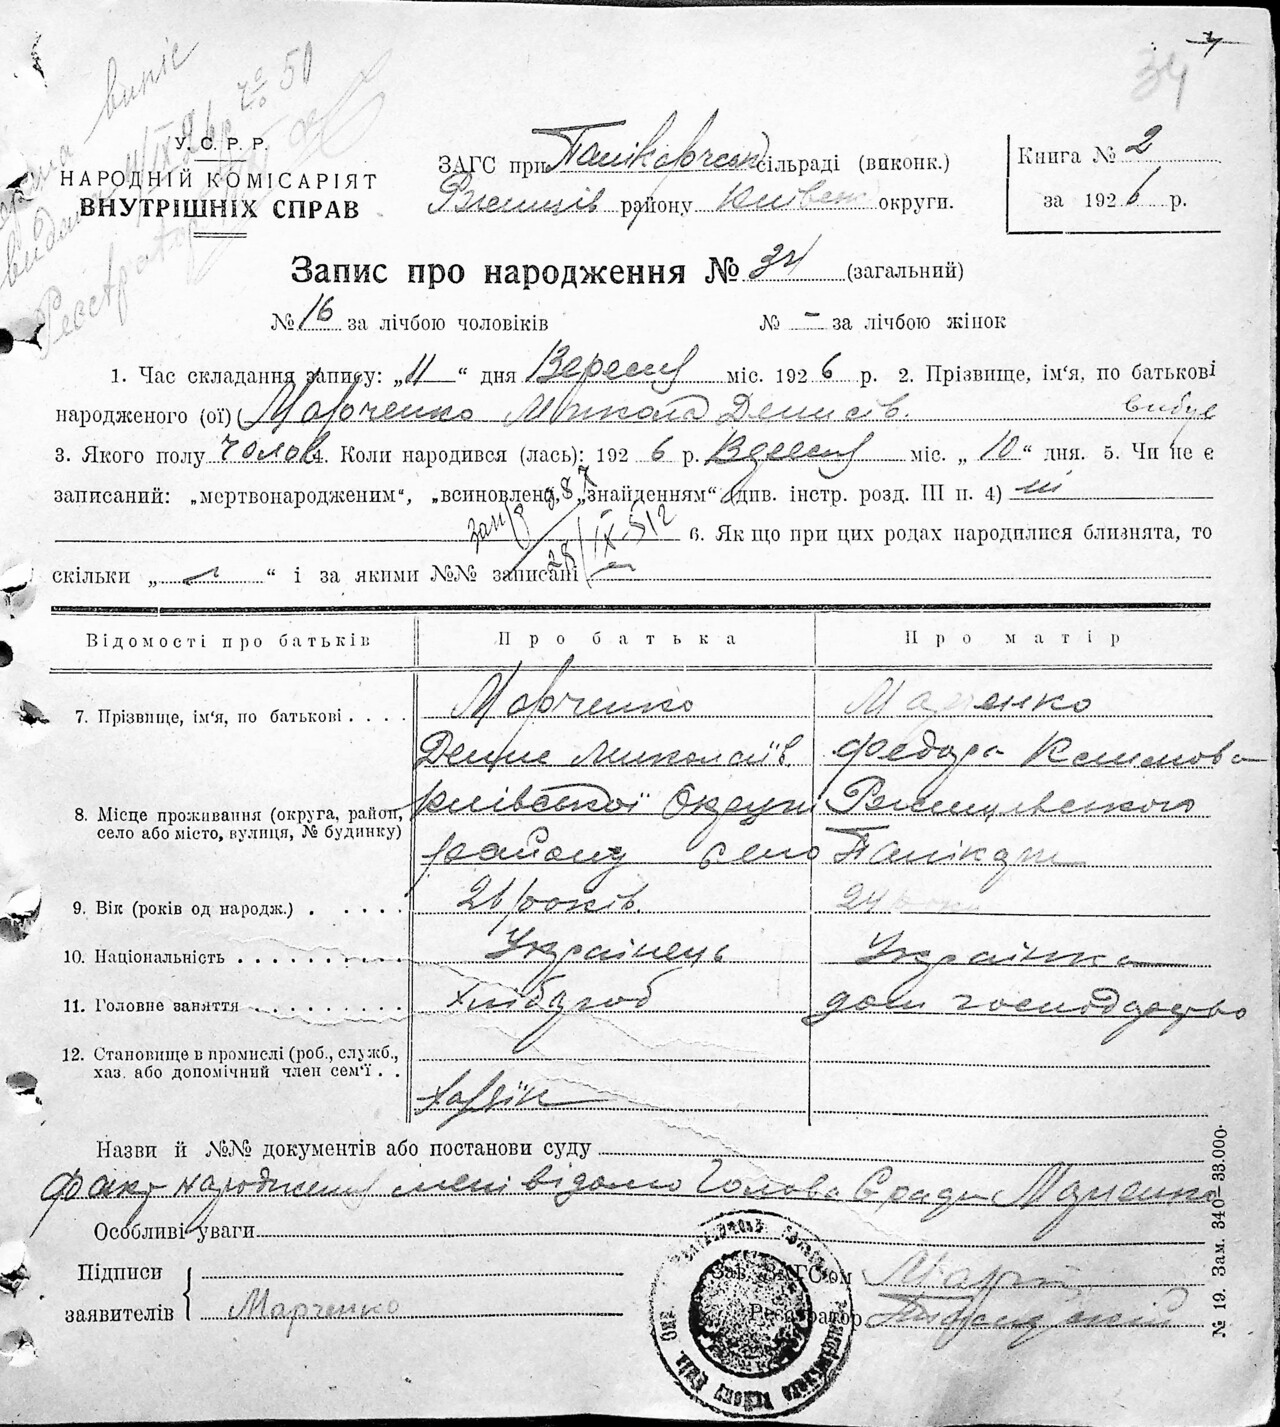 34
виписс
№ 50
У. С. Р. Р.
НАРОДНІЙ КОМІСАРІЯТ
ВНУТРІШНІХ СПРАВ
ЗАГС при Паніковській сільраді (виконк.)
Ржищів району Київськ округи.
Книга № 2
за 1926 р.
Запис про народження № 34 (загальний)
№ 16 за лічбою чоловіків № – за лічбою жінок
1. Час складання запису: „11“ дня Вересня міс. 1926 р. 2. Прізвище, ім'я, по батькові
народженого (ої) (Марченко Микола Денисів.
3. Якого полу чолов 4. Коли народився (лась): 1926 р. Вересня міс. „10“ дня. 5. Чи не є
записаний: „мертвонародженим“, „всиновлено, „знайденням“ (див. інстр. розд. III п. 4)
6. Як що при цих родах народилися близнята, то
скільки „ “ і за якими №№ записані
Відомості про батьків Про батька Про матір
7. Прізвище, ім'я, по батькові . . . . Марченко Марченко
Денис Миколаїв Федора Климова
8. Місце проживання (округа, район, Київської Округи Ржищивського
село або місто, вулиця, № будинку) району село Панікарч
9. Вік (років од народж.) . . . . . 26 років. 24 роки
10. Національність . . . . . . . . . . Українець Українка
11. Головне заняття . . . . . . . . . Хлібороб дом господарство
12. Становище в промислі (роб., служб.,
хаз. або допомічний член сем'ї . . Хазяїн
Назви й №№ документів або постанови суду
Факт народження мені відомо Голова С ради Марченко
Особливі уваги
Підписи Зав. ЗАГС'ом
заявителів { Марченко Реєстратор
№ 19. Зам. 340–33.000.